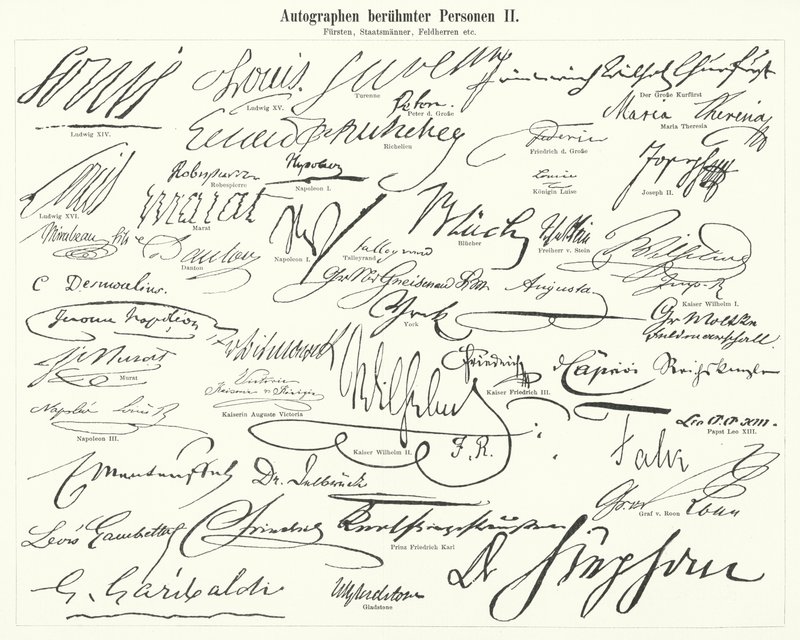 Autographen berühmter Personen II.
Fürsten, Staatsmänner, Feldherren etc.
Louis
Ludwig XIV.
Louis.
Ludwig XV.
Turenne
Wilhelm Churfürst
Der Große Kurfürst
Peter d. Große
Maria Theresia
Maria Theresia
Richelieu
Federic
Friedrich d. Große
Louis
Ludwig XVI.
Robespierre
Robespierre
Napoleon
Napoleon I.
Louise
Königin Luise
Joseph
Joseph II.
Marat
Marat
Mirabeau
Danton
Danton
Napoleon I.
Talleyrand
Talleyrand
Blücher
Blücher
Freiherr v. Stein
Wilhelm
Kaiser Wilhelm I.
C Desmoulins.
Gneisenau
Augusta.
York
York
Jerome Napoléon
Gr Moltke
Feldmarschall.
Murat
Murat
v Bismarck
Victoria
Kaiserin Auguste Victoria
Wilhelm
Kaiser Wilhelm II.
I. R.
Friedrich
Kaiser Friedrich III.
Caprivi Reichskanzler
Napoleon III.
Leo P.P. XIII.
Papst Leo XIII.
Falk
E Manteuffel
Dr. Delbrück
Graf v. Roon
Léon Gambetta
Friedrich Karl
Prinz Friedrich Karl
Dr Stephan
G. Garibaldi
WEGladstone
Gladstone